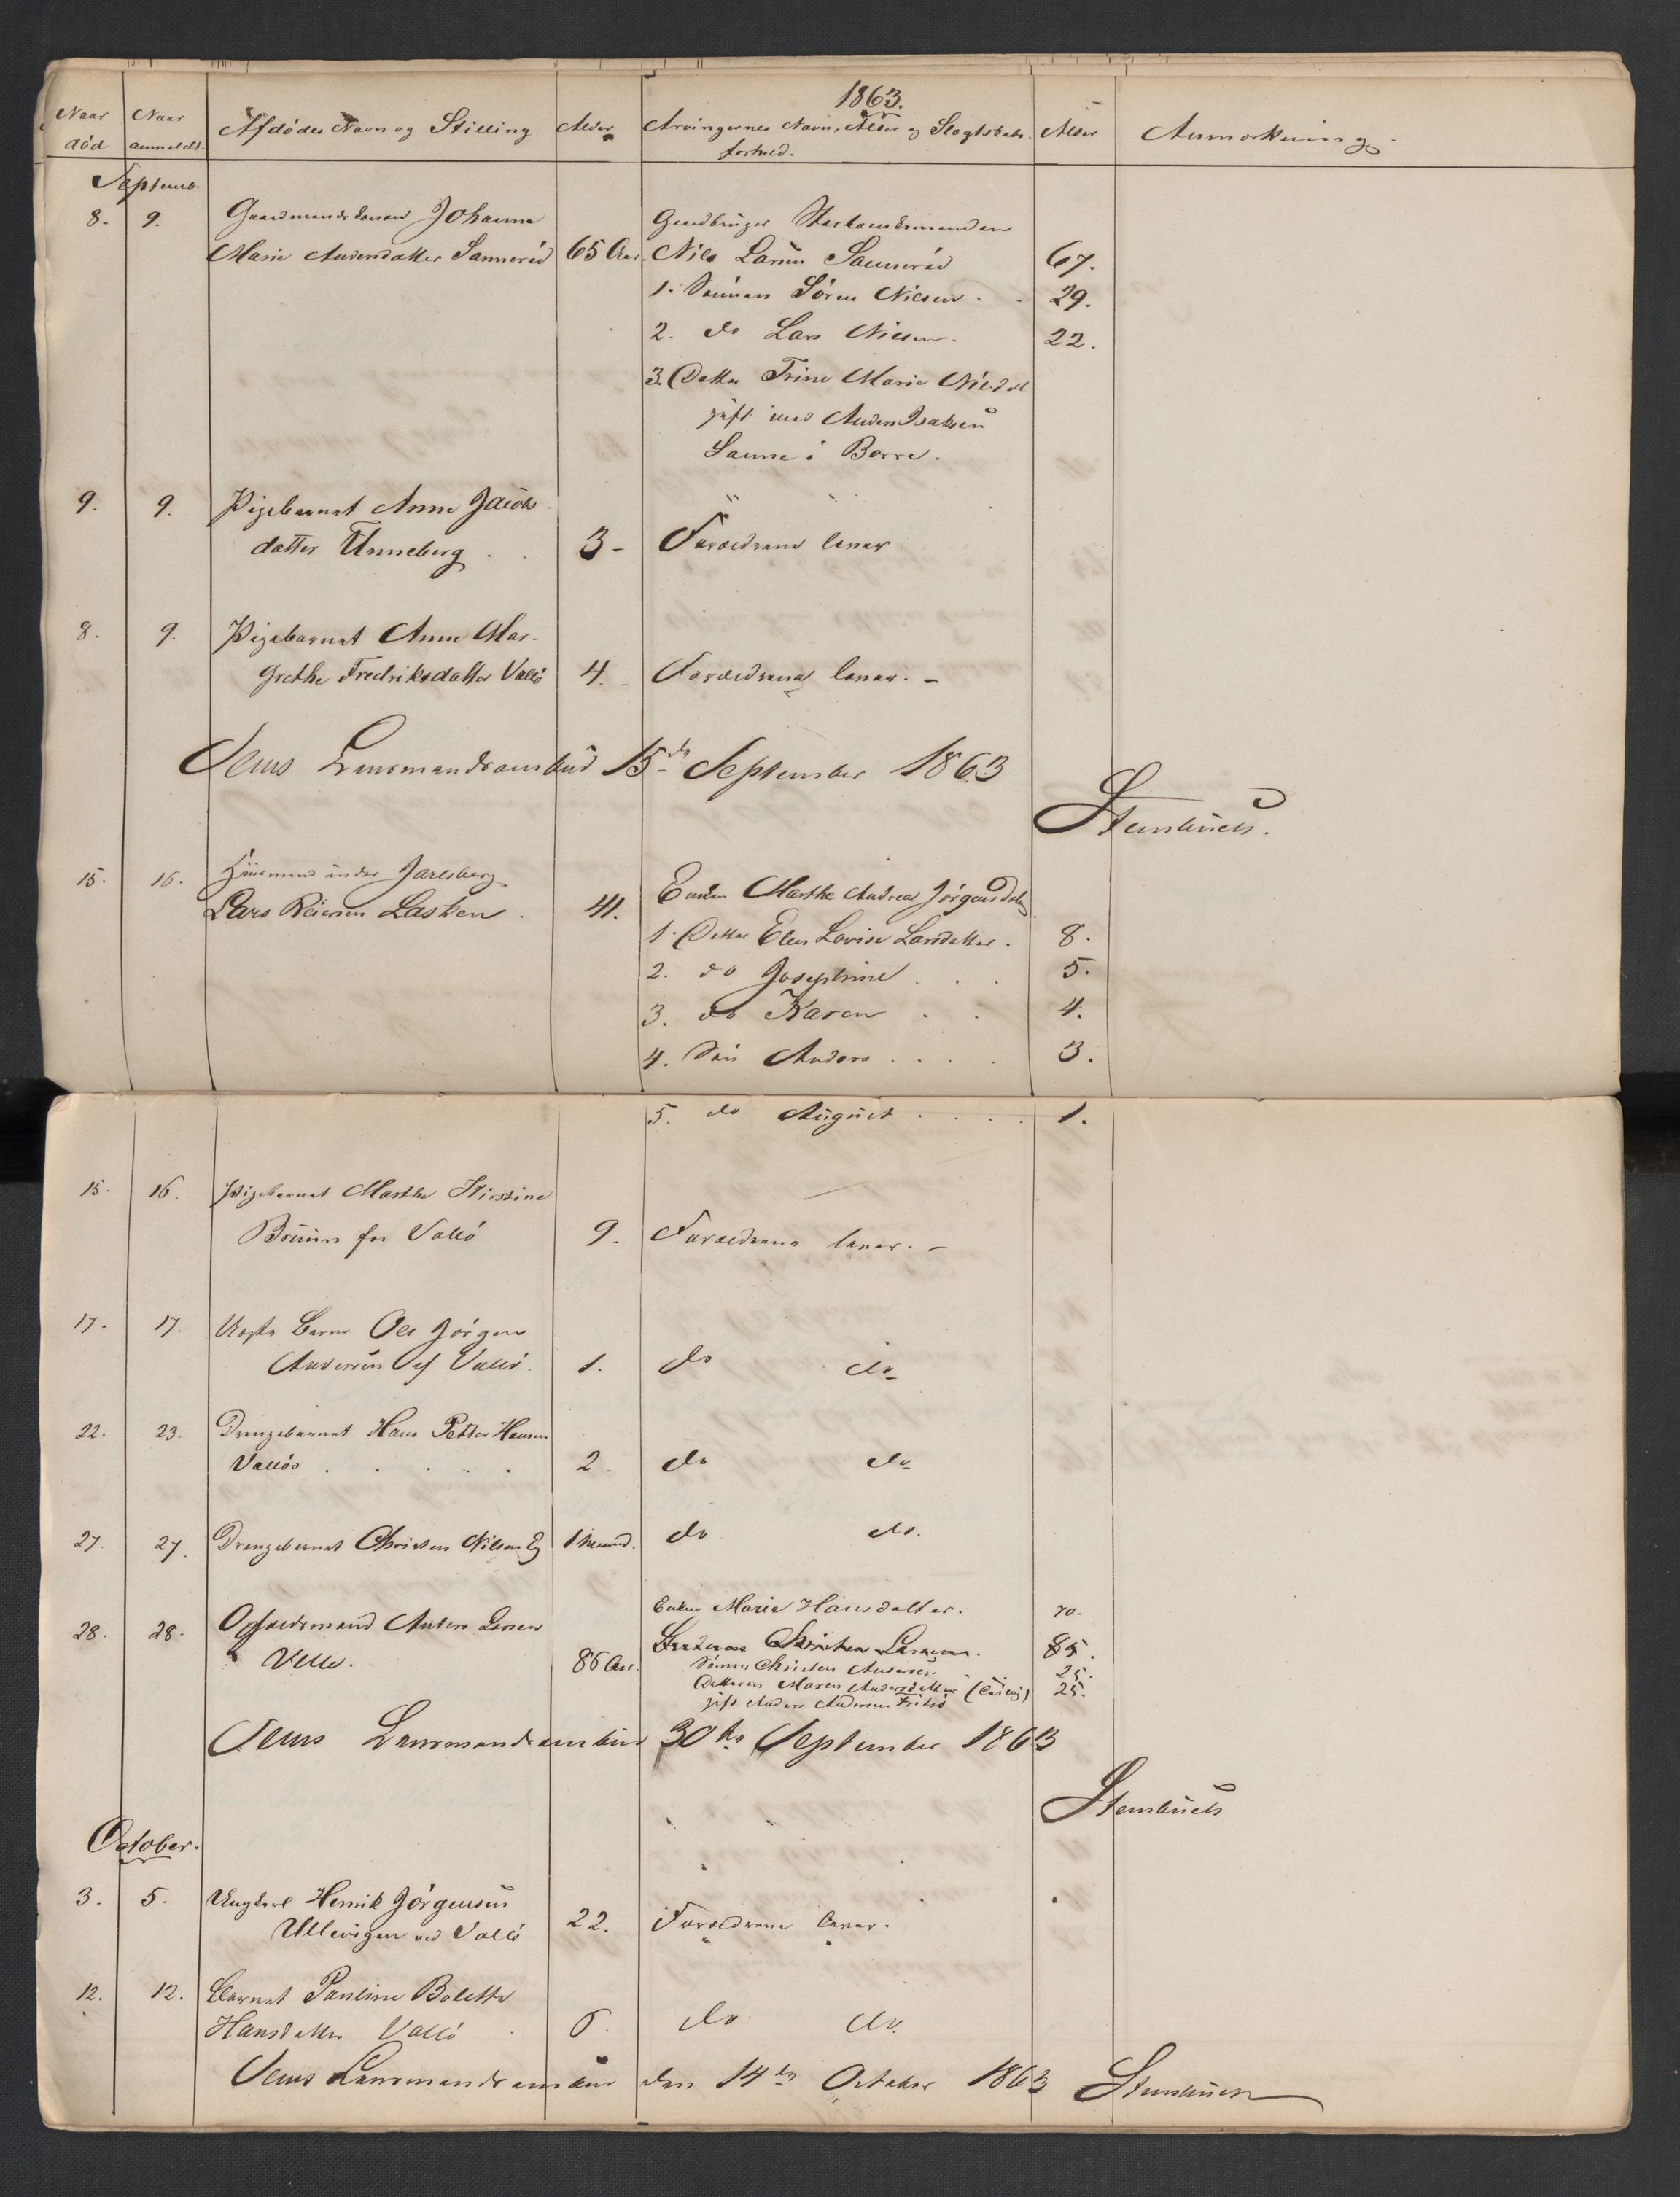 1863.
Naar død
Naar anmeldt.
Afdødes Navn og Stilling
Alder
Arvingernes Navn, Alder og Slægtskabs-
forhold.
Alder
Anmærkning.
Septemb.
8. 9. Gaardmandskonen Johanna
Marie Andersdatter Sannerød 65 Aar.
Gaardbruger
Nils Larsen Sannerød 67.
1. Sønnen Søren Nielsen. 29.
2. do Lars Nielsen. 22.
3. Datter Trine Marie Nilsd
gift med Anders Isaksen
Sanne i Borre.
9. 9. Pigebarnet Anne Jacobs-
datter Unneberg . . 3 - Forældrene lever
8. 9. Pigebarnet Anne Mar-
grethe Fredriksdatter Vallø 4. Forældrene lever. -
Sems Lensmandsombud 15de September 1863
Steenbuch.
15. 16. Huusmand under Jarlsberg
Lars Reiersen Lasken . 41.
Enken Marthe Andrea Jørgensdatter
1. Datter Elen Lovise Larsdatter. 8.
2. do Josephine . . . 5.
3. do Karen . . 4.
4. Søn Anders . . . . 3.
5. do August . . . . 1.
15. 16. Pigebarnet Marthe Kirstine
Bruun fra Vallø 9. Forældrene lever. -
17. 17. Barn Ole Jørgen
Andersen af Vallø. 1. do do
22. 23. Drengebarnet Hans Petter Hansen
Valløe . . . . . 2. do do
27. 27. Drengebarnet Christen Nilsen Eg 1 Maaned. do do.
28. 28. Opholdsmand Anders Larsen
Velle. 86 Aar.
Enken Marie Hansdatter. 70.
Broderen Christen Larsen. 85.
Sønnen Christen Andersen. 25.
Datteren Maren Andersdatter 25.
gift Anders Andersen
Sems Lensmandsombud 30te September 1863
Steenbuch
October.
3. 5. Ungkarl Henrik Jørgensen
Ullevigen ved Vallø 22. Forældrene lever.
12. 12. Barnet Pauline Bolette
Hansdatter Vallø . 6. do do.
Sems Lensmandsombud den 14de October 1863 Steenbuch